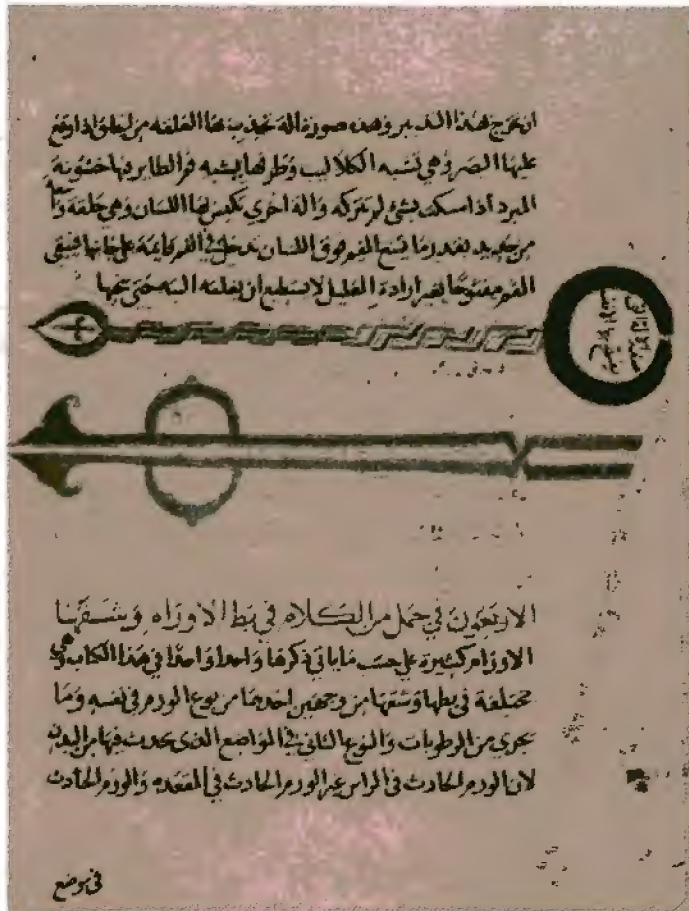 ان يخرج بهذا التدبير وهذه صورة الة تجذب بها العلقة من الحلق اذا وقع
عليها البصر وهي تشبه الكلاليب وطرفها يشبه فم الطاير فيها خشونة
المبرد اذا مسكت بشئ لم تتركه والة اخرى تكبس بها اللسان وهي حلقة
من حديد بقدر ما يسع الفم فوق اللسان تدخل في الفم قايمة على جانبها فيبقى
الفم مفتوحا بغير ارادة العليل لا يستطيع ان يغلقه البتة حتى ينحيها
الاربعون في جمل من الكلام في بط الاورام وشقها
الاورام كثيرة على حسب ما ياتي ذكرها واحدا واحدا في هذا الكتاب وهي
مختلفة في بطها وشقها من وجهين احدهما من نوع الورم في نفسه وما
يحوي من الرطوبات والنوع الثاني في المواضع الذي يحدث فيها من البدن
لان الورم الحادث في الراس غير الورم الحادث في المقعده والورم الحادث
في موضع